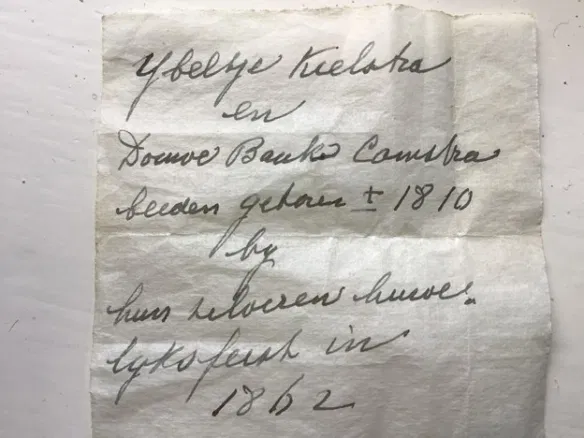 Ybeltje Kielstra
en
Douwe Bauke Camstra
beiden geboren ± 1810
by
hun zilveren huwe=
lyksfeest in
1862